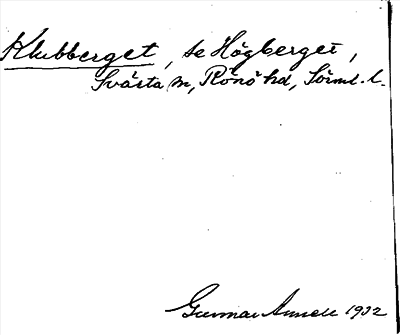 Klubberget, se Högberget,
Svärta sn, Rönö hd, Sörml. l.
Gunnar Annell 1932